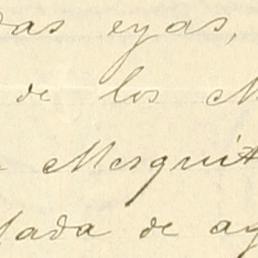 das eyas,
de los M
Mesquit
lada de ag